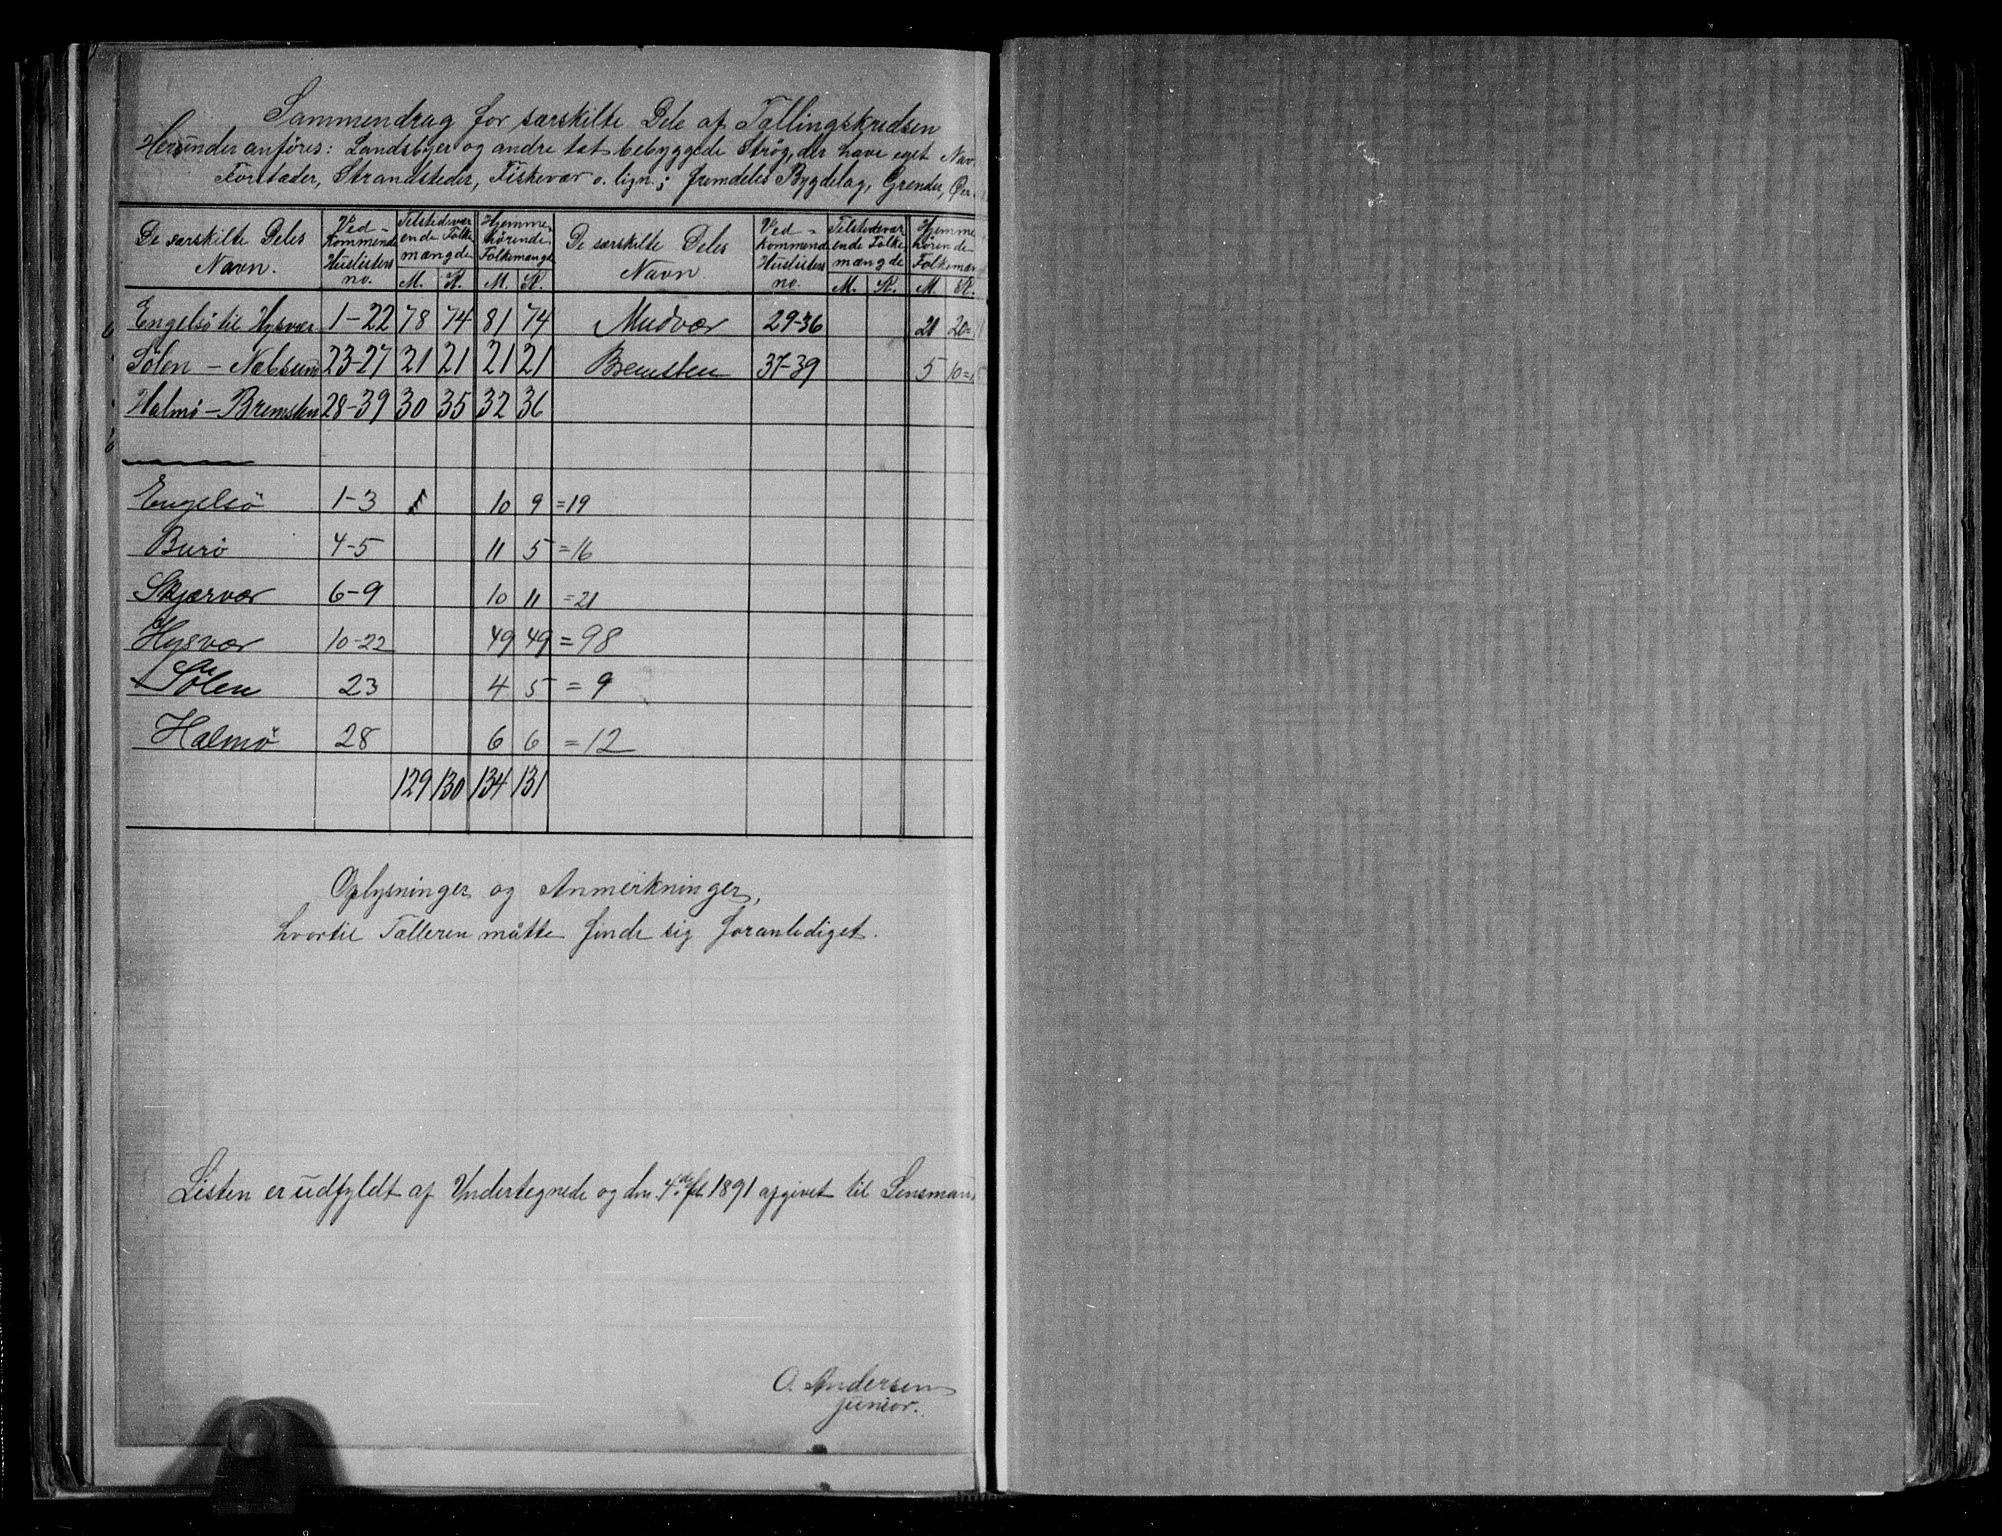 Sammendrag for særskilte Dele af Tællingskredsen
Herunder anføres: Landsbyer og andre tæt bebyggede Strøg, der have eget Nav
Forstæder, Strandsteder, Fiskevær o. lign.; fremdeles Bygdelag, Grender, Øer
De særskilte Deles Navn. | Ved-kommende Huslistens no. | Tilstedevær ende Folke mængde M. K. | Hjemme-hørende Folkemængde M. K. | De særskilte Deles Navn. | Ved-kommend Huslistens no. | Tilstedevær ende Folke mængde M. K. | Hjemme hørende Folkemæn M. K.
Engelsö til Hysvær 1-22 78 74 81 74 Mudvær 29-36 21 20=
Sölen - Nælsund 23-27 21 21 21 21 Bremsten 37-39 5 10=
Halmö - Bremsten 28-39 30 35 32 36
Engelsö 1-3 10 9 =19
Burö 4-5 11 5 =16
Skjærvær 6-9 10 11 =21
Hysvær 10-22 49 49 =98
Sölen 23 4 5 = 9
Halmö 28 6 6 =12
129 130 134 131
Oplysninger og Anmerkninger,
hvortil Tælleren måtte finde sig foranlediget.
Listen er udfyldt af Undertegnede og den 4de 1891 afgivet til Lensmann
O. Andersen
junior.